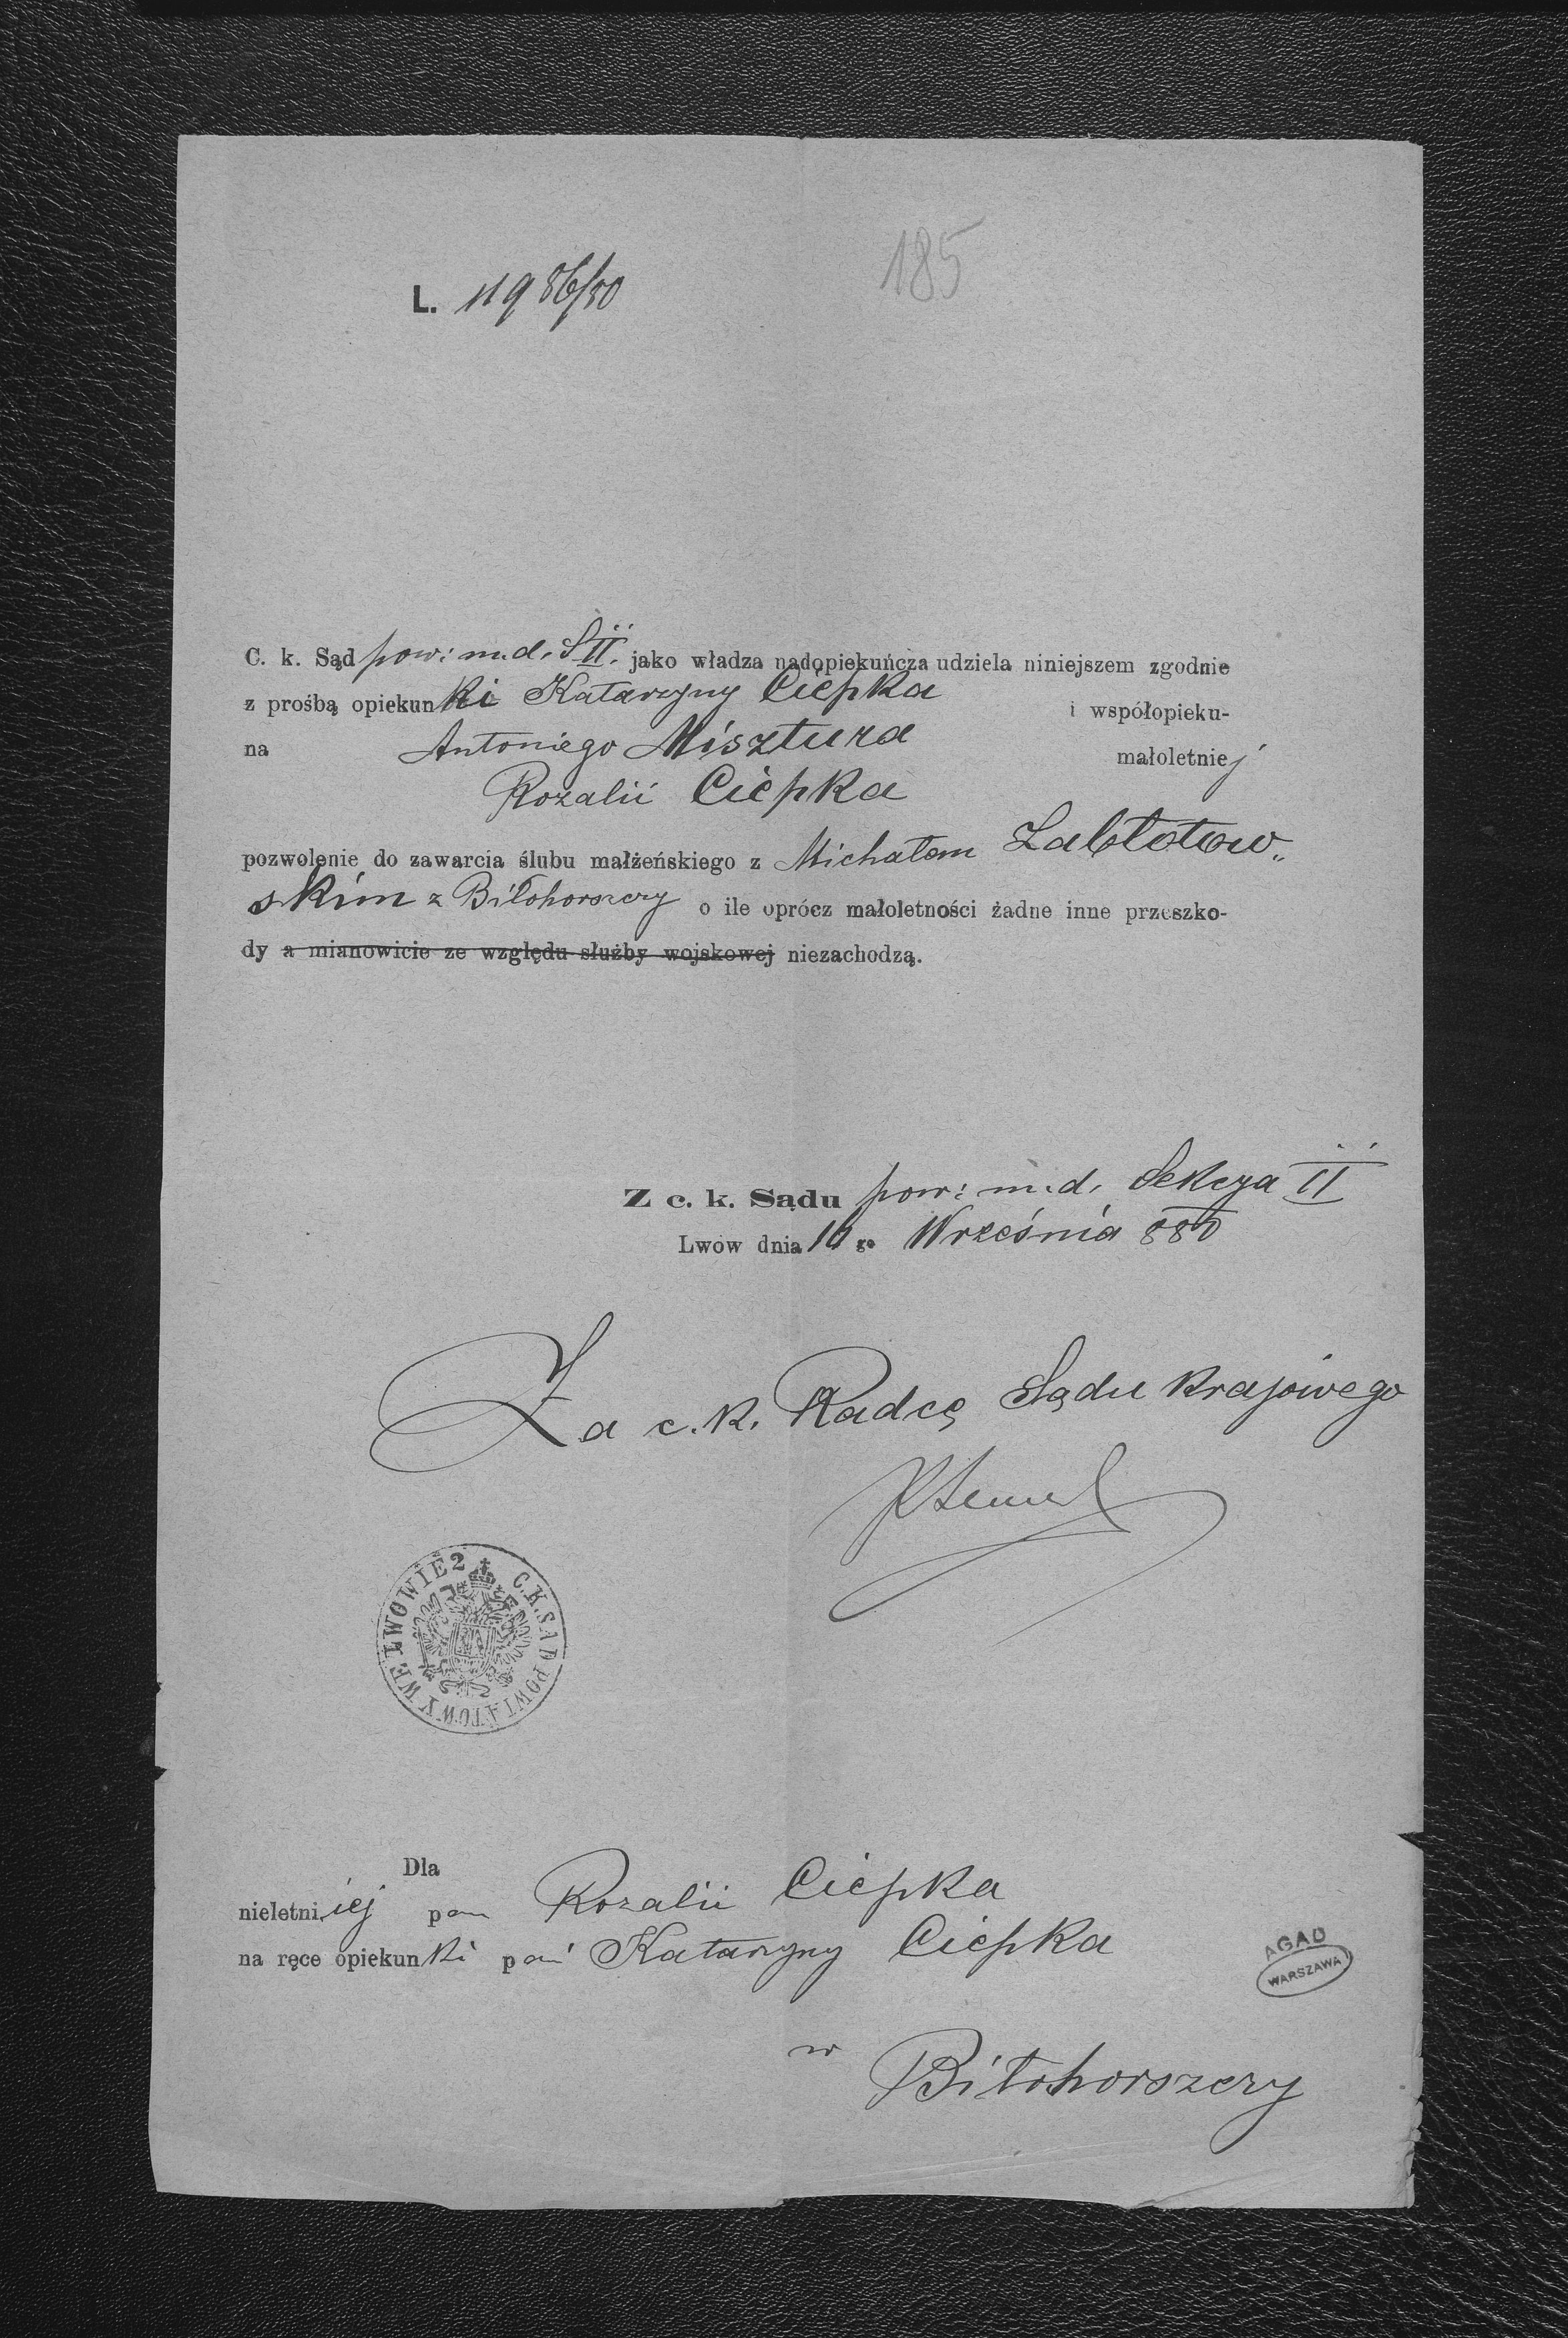 185
L. 11986/80
C. k. Sąd pow: m. d. S II. jako władza nadopiekuńcza udziela niniejszem zgodnie
z prośbą opiekunki Katarzyny Ciepka i współopieku-
na Antoniego Misztura małoletniej
Rozalii Ciepka
pozwolenie do zawarcia ślubu małżeńskiego z Michałem Zabłotow„
skim z Biłohorszczy o ile oprócz małoletności żadne inne przeszko-
dy a mianowicie ze względu służby wojskowej niezachodzą.
Z c. k. Sądu pow: m. d. Sekcya II
Lwow dnia go Września 880
Za c. k. Radcę Sądu krajowego
C.K.SĄD POWIATOWY WE LWOWIE 2
Dla
nieletniiej pan Rozalii Ciepka
na ręce opiekunki pani Katarzyny Ciepka
AGAD
WARSZAWA
w Biłohorszczy